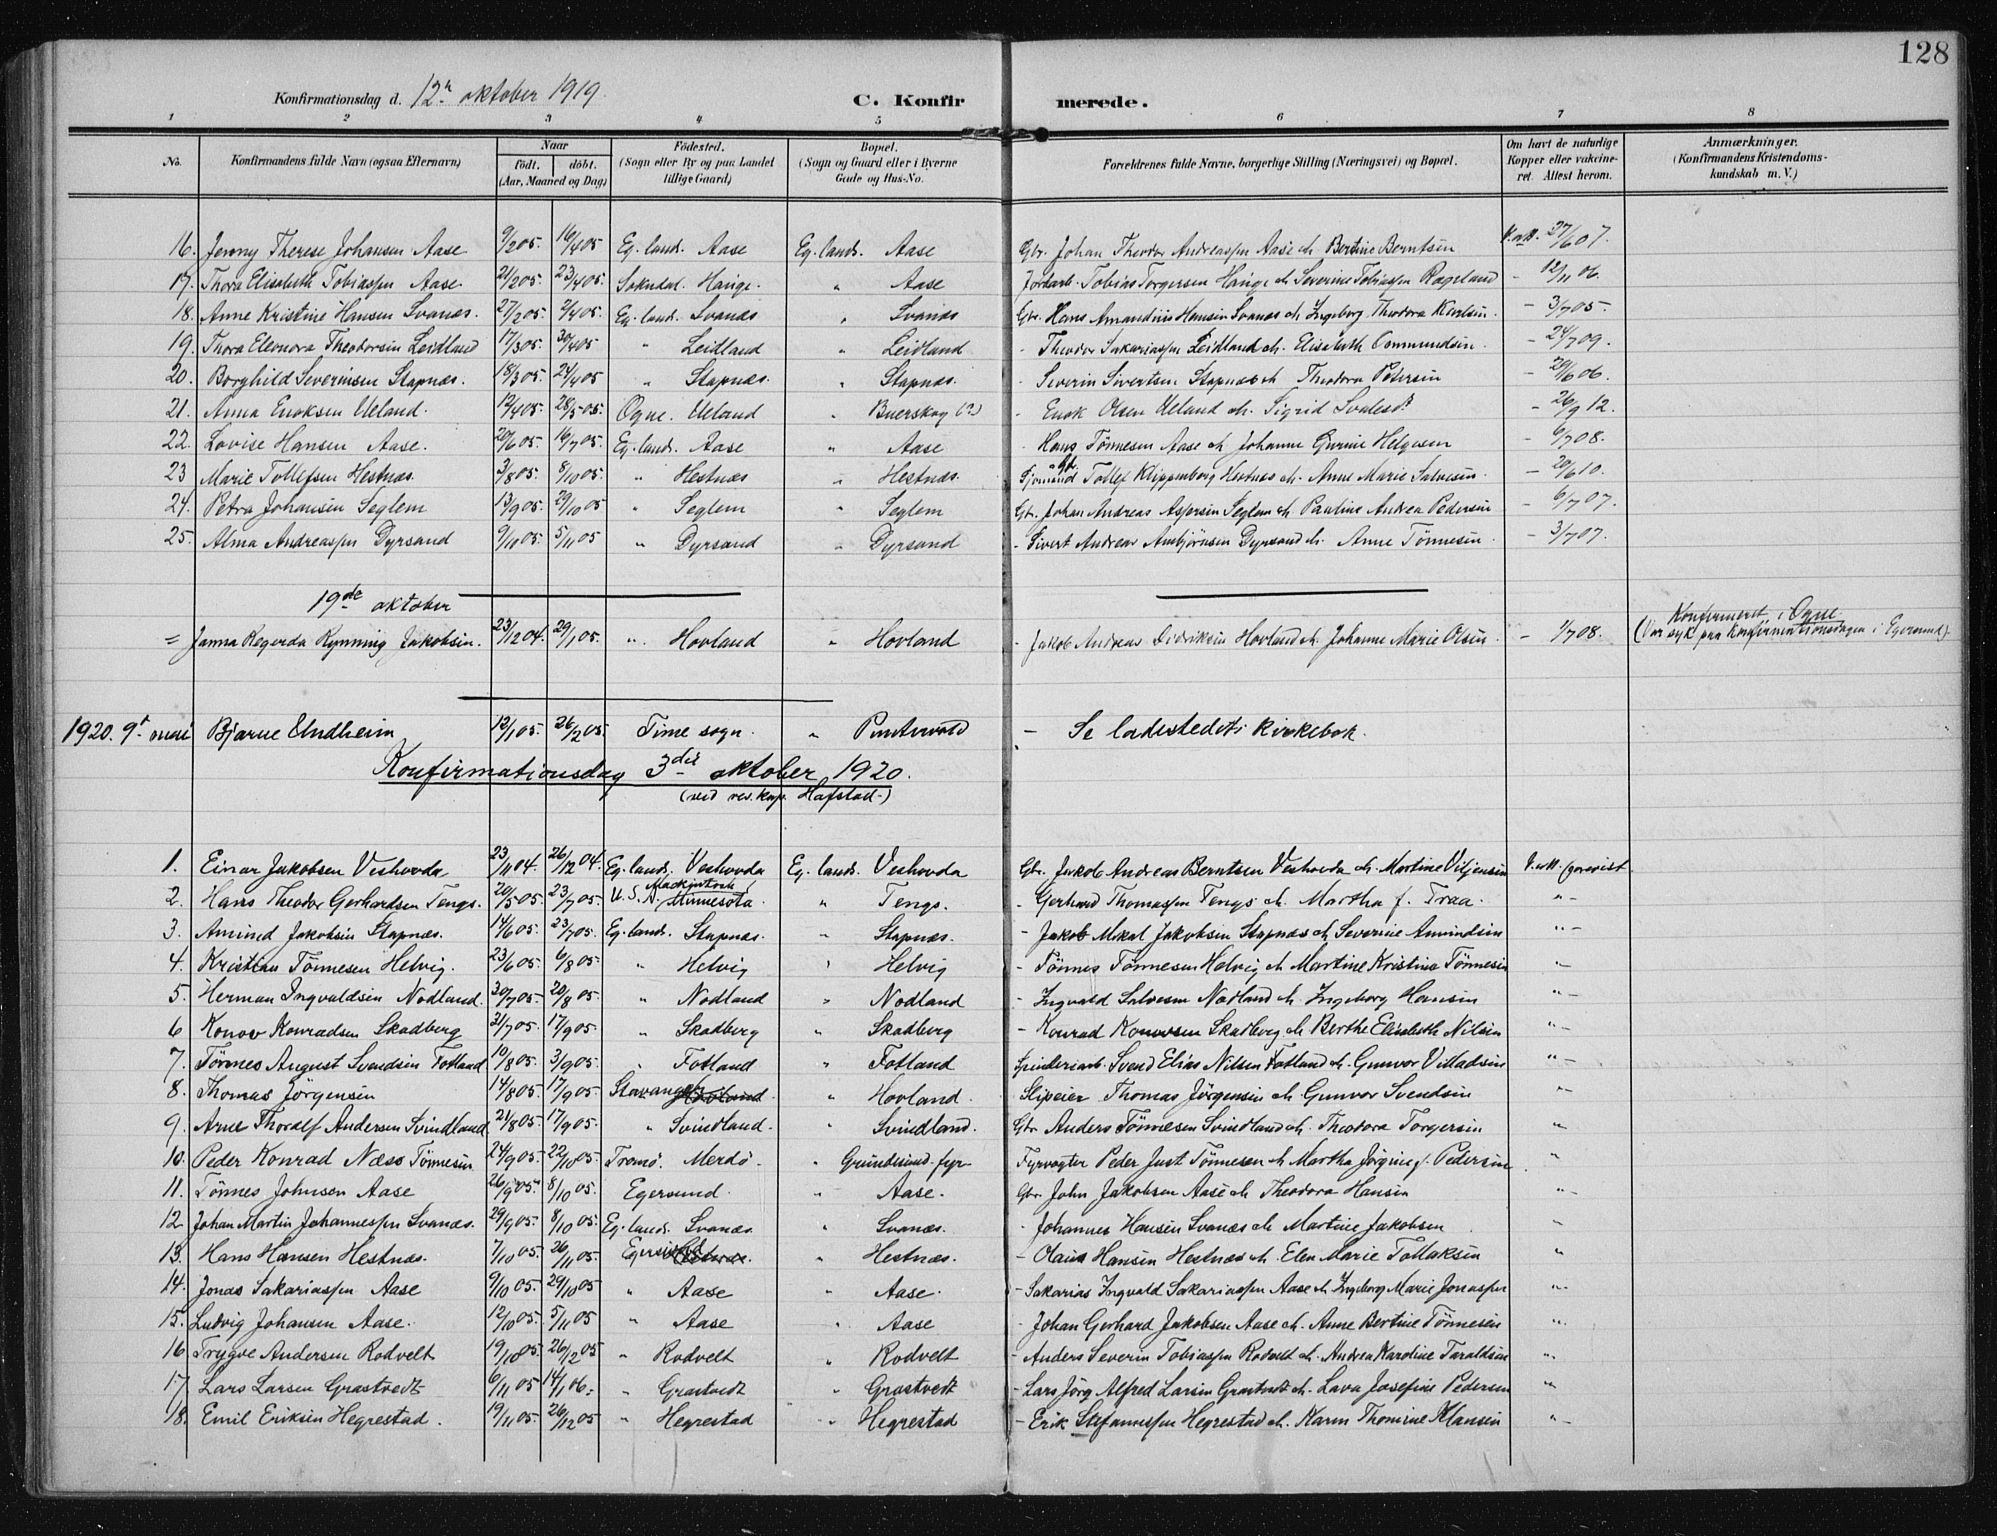 128
Konfirmationsdag d. 12te oktober 1919. C. Konfirmerede.
1 2 3 4 5 6 7 8
No. Konfirmandens fulde Navn (ogsaa Efternavn) Naar født. døbt. (Aar, Maaned og Dag) Fødested. (Sogn eller By og paa Landet tillige Gaard) Bopæl. (Sogn og Gaard eller i Byerne Gade og Hus-No. Forældrenes fulde Navne, borgerlige Stilling (Næringsvei) og Bopæl. Om havt de naturlige Kopper eller vakcineret. Attest herom. Anmærkninger. (Konfirmandens Kristendomskundskab m. V.)
16. Jenny Therese Johansen Aase 9/2 05. 16/4 05 Eg. land. Aase Eg. lands. Aase Gbr. Johan Theodor Andreassen Aase & Bertine Berntsen V.att. 27/6 07.
17. Thora Elisabeth Tobiassen Aase 21/2 05. 23/4 05. Sokndal. Hauge. " Aase Jordarb. Tobias Torgersen Hauge & Severine Tobiassen Rageland - 12/11 06.
18. Anne Kristine Hansen Svanæs. 27/2 05. 2/4 05. Eg. land. Svanæs " Svanæs Gbr. Hans Amandius Hansen Svanæs & Ingeborg Theodora Karlsen. - 3/7 05.
19. Thora Eleonora Theodorsen Leidland 17/3 05. 30/4 05 " Leidland " Leidland - Theodor Sakariassen Leidland & Elisabeth Ommundsen. - 24/7 09.
20. Borghild Severinsen Stapnæs. 18/3 05. 24/4 05 " Stapnæs. " Stapnæs. - Severin Sivertsen Stapnæs & Theodora Petersen - 29/6 06.
21. Anna Enoksen Ueland. 12/4 05. 28/5 05. Ogne. Ueland " Buerskog (?) - Enok Olsen Ueland & Sigrid Svalesd. - 26/9 12.
22. Lovise Hansen Aase. 20/6 05. 16/7 05. Eg. land. Aase " Aase - Hans Tönnesen Aase & Johanne Gurine Helgesen - 6/7 08.
23 Marie Tollefsen Hestnæs. 3/8 05. 8/10 05. " Hestnæs " Hestnæs. Sjømand & Gbr. Tollef Klippenberg Hestnæs & Anne Marie Salvesen. - 20/6 10.
24. Petra Johansen Seglem 13/9 05. 29/10 05 " Seglem " Seglem Gbr. Johan Andreas Aspersen Seglem & Pauline Andrea Pedersen - 6/7 07.
25. Alma Andreassen Dyrsand 9/10 05. 5/11 05 " Dyrsand " Dyrsand - Sivert Andreas Ambjörnsen Dyrsand & Anne Tönnesen. - 3/7 07.
19de oktober
= Janna Regerda Rynning Jakobsen. 23/12 04. 29/1 05. " Hovland " Hovland - Jakob Andreas Didriksen Hovland & Johanne Marie Olsen. - 1/7 08. Konfirmeret i Ogne (Var syk paa Konfirmationsdagen i Egersund).
1920. 9de mai Bjarne Undheim 12/1 05. 26/2 05. Time sogn. " - Se ladestedets kirkebok.
Konfirmationsdag 3die oktober 1920.
(ved res. kap. Hafstad.)
1. Einar Jakobsen Veshovda 23/11 04. 26/12 04. Eg. lands. Veshovda Eg. lands. Veshovda Gbr. Jakob Andreas Berntsen Veshovda & Martine Viljensen V.att. forevist
2. Hans Theodor Gerhardsen Tengs. 20/5 05. 23/7 05. U.S.A. Mackintosh Minnesota " Tengs. - Gerhard Thomassen Tengs & Martha f. Traa. " -
3. Amund Jakobsen Stapnæs. 14/6 05. 23/7 05. Eg. land. Stapnæs. " Stapnæs. - Jakob Mikal Jakobsen Stapnæs & Severine Amundsen " -
4. Kristian Tönnesen Helvig. 23/6 05. 6/8 05. " Helvig " Helvig - Tönnes Tönnesen Helvig & Martine Kristine Tönnesen " -
5. Herman Ingvaldsen Nodland. 30/7 05. 20/8 05. " Nodland " Nodland - Ingvald Salvesen Nodland & Ingeborg Hansen " -
6 Konov Konradsen Skadberg 31/7 05. 17/9 05. " Skadberg " Skadberg - Konrad Konovsen Skadberg & Berthe Elisabeth Nilsen " -
7. Tönnes August Svendsen Fotland 10/8 05. 3/9 05. " Fotland " Fotland Spinderiarb. Svend Elias Nilsen Fotland & Gunvor Villadsen " -
8. Thomas Jörgensen 14/8 05. 17/9 05. Stavanger Hovland. " Hovland. Slipeier Thomas Jörgensen & Gunvor Svendsen " -
9. Arne Thoralf Andersen Svindland 24/8 05. 17/9 05. " Svindland. " Svindland. Gbr. Anders Tönnesen Svindland & Theodora Torgersen "
10. Peder Konrad Næss Tönnesen 24/9 05. 22/10 05. Tromö. Merdö. " Grundsund fyr Fyrvogter Peder Just Tönnesen & Martha Jörgine f. Pedersen "
11. Tönnes Johnsen Aase 26/9 05. 8/10 05. Egersund. " Aase. Gbr. John Jakobsen Aase & Theodora Hansen "
12. Johan Martin Johannessen Svanæs. 29/9 05. 8/10 05. Eg. land. Svanæs " Svanæs. - Johannes Hansen Svanæs & Martine Jakobsen "
13. Hans Hansen Hestnæs. 7/10 05. 26/11 05. Egersund Hestnæs. " Hestnæs. - Olaus Hansen Hestnæs & Elen Marie Tollaksen "
14. Jonas Sakariassen Aase 9/10 05. 29/10 05 " Aase " Aase. - Sakarias Ingvald Sakariassen Aase & Ingeborg Marie Jonassen "
15. Ludvig Johansen Aase. 12/10 05. 5/11 05 " Aase " Aase - Johan Gerhard Jakobsen Aase & Anne Bertine Tönnesen "
16 Trygve Andersen Rodvelt 19/10 05. 26/12 05 " Rodvelt " Rodvelt - Anders Severin Tobiassen Rodvelt & Andrea Karoline Taraldsen "
17 Lars Larsen Grastvedt 6/11 05 14/1 06. " Grastvedt " Grastvedt - Lars Jörg. Alfred Larsen Grastvedt & Lava Josefine Pedersen "
18. Emil Eriksen Hegrestad. 19/11 05. 26/12 05 " Hegrestad " Hegrestad - Erik Stefanussen Hegrestad & Karen Thomine Hansen " -